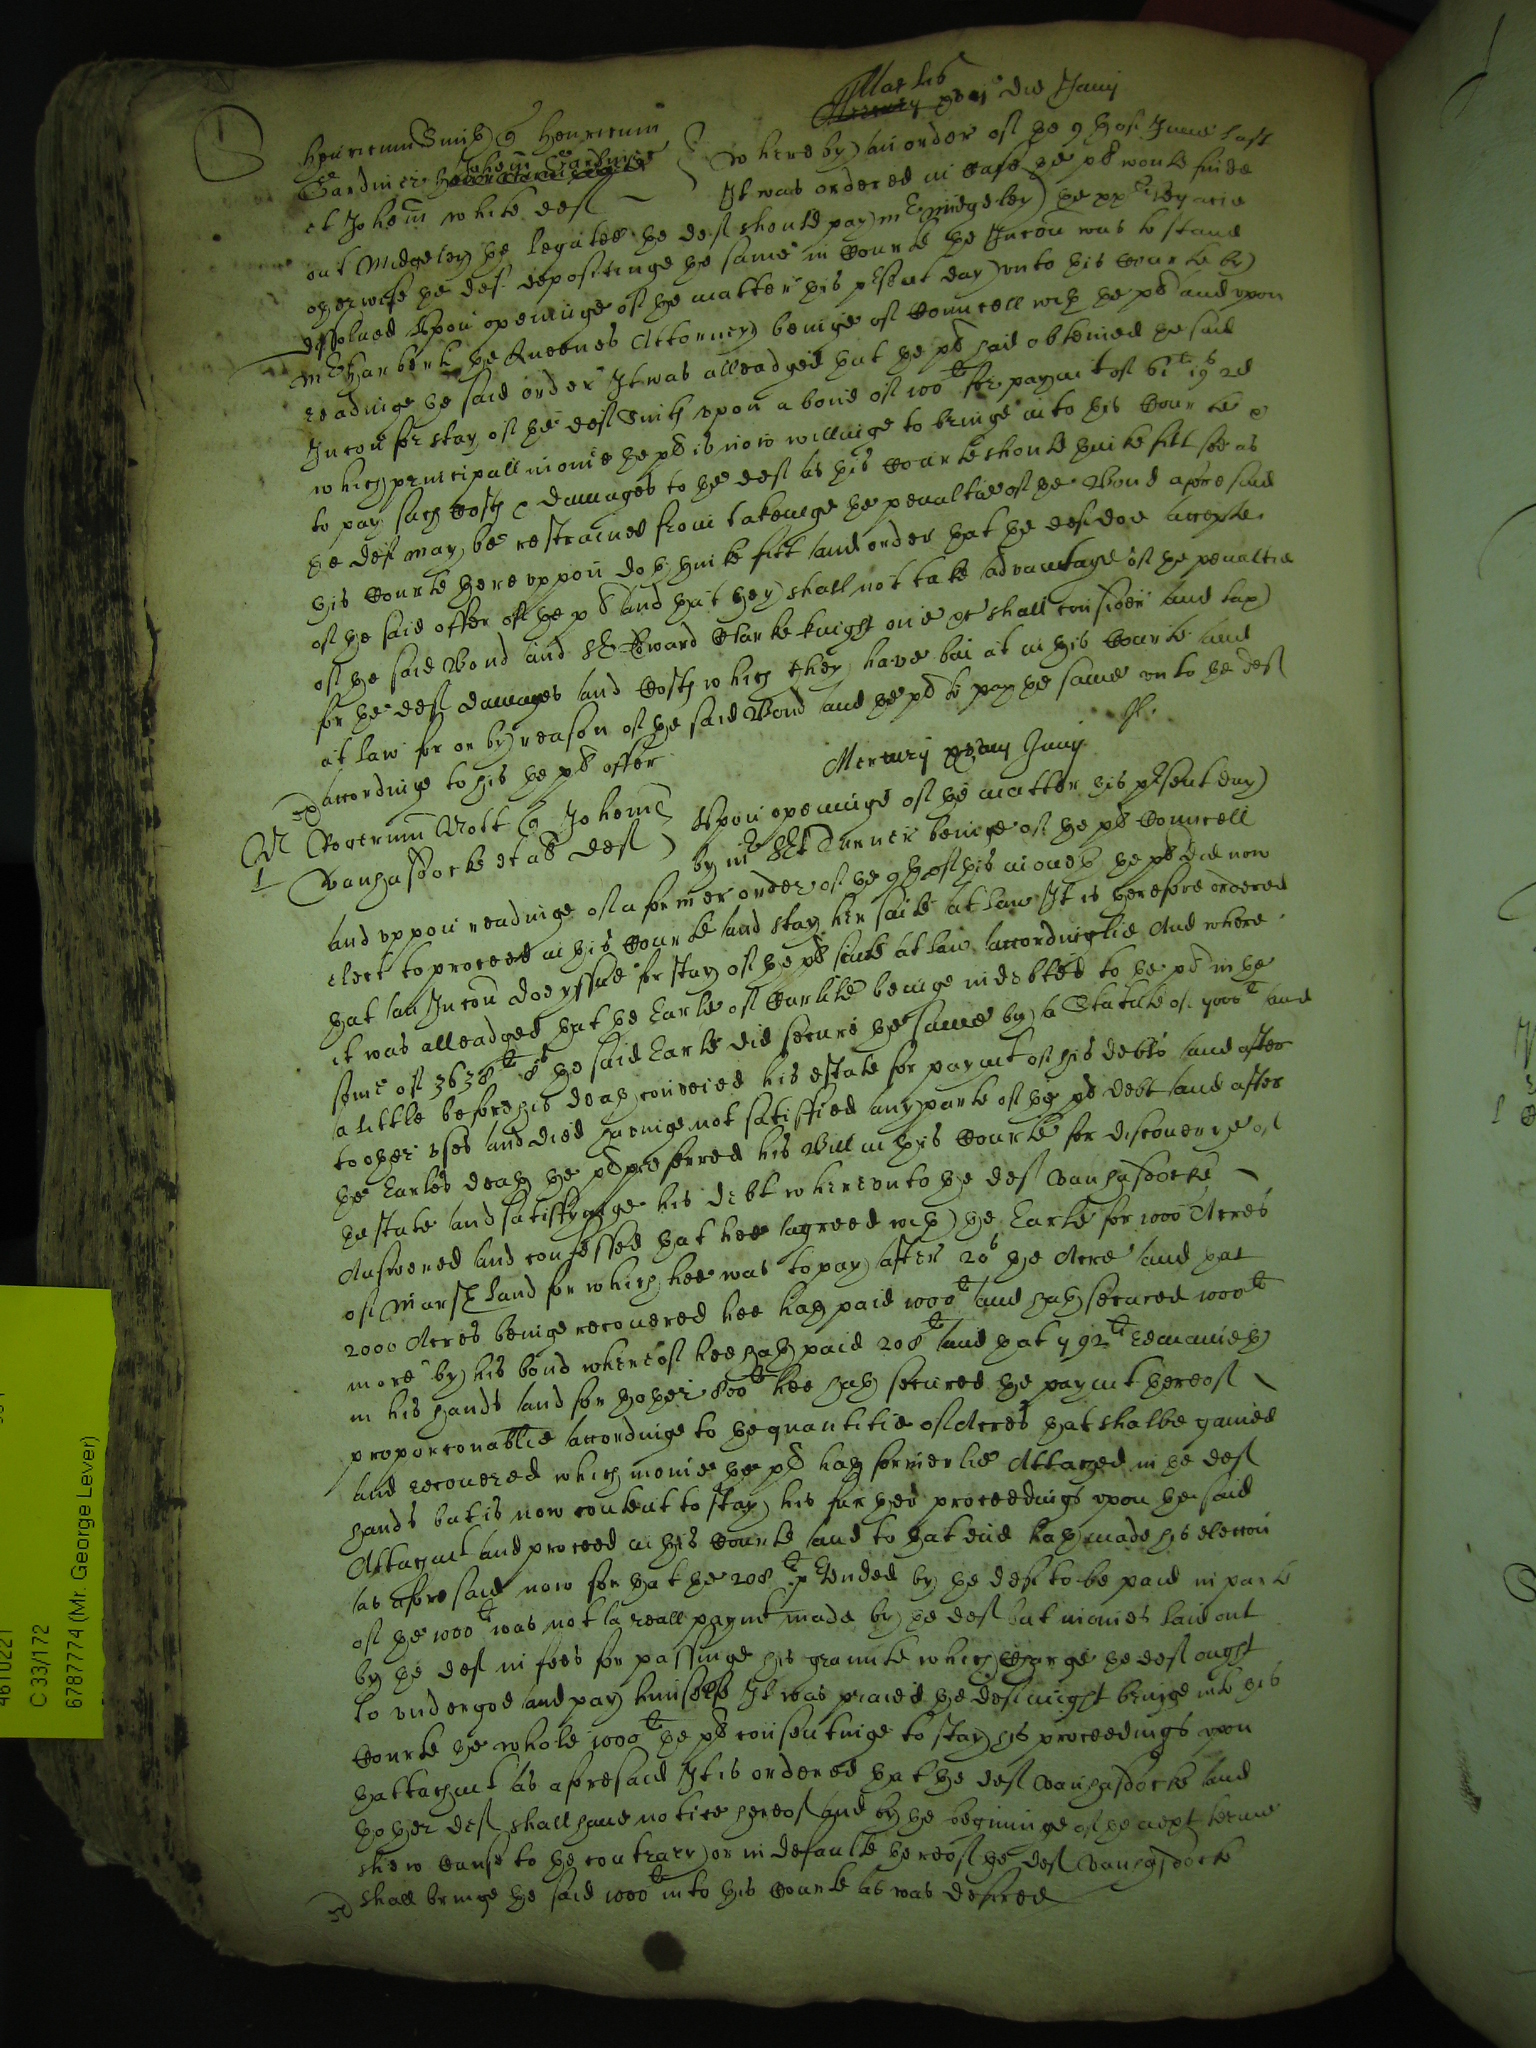 Martis
Mercurij xvij die Junij
Henricum Smith & Henricum
Gardiner Johem Gardiner
et Johem white def
whereby an order of the 9th of June last
It was ordered in case the pl would finde
out Midgeley the legatee the def should pay mr Midgeley the legacie
otherwise the def depositinge the same in Courte the Iniuncon was to stand
dissolued Vpon openinge of the matter this present day vnto this Courte by
Mr Harbert the Queenes Attorney beinge of Councell with the pl and vpon
readinge the said order It was alleadged that the pl had obteined the said
Iniuncon for stay of the def Smith vpon a bond of 100li for paymt of 61li 19s 2d
which principall monie the pl is now willinge to bringe into this Courte &
to pay such costs & damages to the def as this Courte should thinke fitt soe as
the def may be restrained from takeinge the penaltie of the Bond aforesaid
this Courte hereuppon doth thinke fitt and order that the def doe accepte
of the said offer of the pl and that they shall not take advantage of the penaltie
of the said Bond and Sr Edward Clarke knight one &c shall consider and tax
for the def damages and Costs which they have bin at in this Courte and
at law for or by reason of the said Bond and the pl to pay the same vnto the def
accordinge to his the pl offer
Mercurij Junij
Rogerum Nott & Johem
Vanhasdocke et al def
Vpon openinge of the matter this present day
by mr Turner beinge of the pl Councell
and vppon readinge of a former order of the 9th of this moneth the pl did now
elect to proceed in this Courte and stay her suite at law It is therefore ordered
that an Iniuncon doe yssue for stay of the pl suite at law accordinglie And where
it was alleadged that the Earle of Carlile beinge indebted to the pl in the
some of 3638li 8s the said Earle did secure the same by a Statute of 7000li and
a little before his death conveied his estate for paymt of his debts and after
to other vses and died haveinge not satisfied any parte of the pl debt and after
the Earles death the pl preferred his Bill in this Courte for discouerie of
thestate and satisfyinge his debt wherevnto the def Vanhasdocke
Answered and confessed that hee agreed with the Earle for 1000 Acres
of Marsh land for which hee was to pay after 20s the Acre and that
2000 Acres beinge recouered hee hath paid 1000li and hath secured 1000li
more by his bond whereof hee hath paid 208li and that 792li remaineth
in his hands and for thother 800li hee hath secured the paymt thereof
proporconablie accordinge to the quantitie of Acres that shalbe gained
and recouered which monie the pl hath formerlie Attached in the def
hands but is now content to stay his further proceedings vpon the said
Attachmt and proceed in this Courte and to that end hath made his eleccon
as aforesaid now for that the 208li pretended by the def to be paid in parte
of the 1000li was not a reall paymt made by the def but monies laid out
by the def in fees for passinge his graunte which charge the def ought
to vndergoe and pay himselfe It was praied the def might bringe into this
Courte the whole 1000li the pl consentinge to stay his proceedings vpon
thattachmt as aforesaid It is ordered that the def Vanhasdocke and
thother def shall haue notice hereof and by the beginninge of the next terme
shew cause to the contrary or in defaulte thereof the def Vanhasdocke
shall bringe the said 1000li into this Courte as was desired
4610221
C 33/172
6787774 (Mr. George Lever)